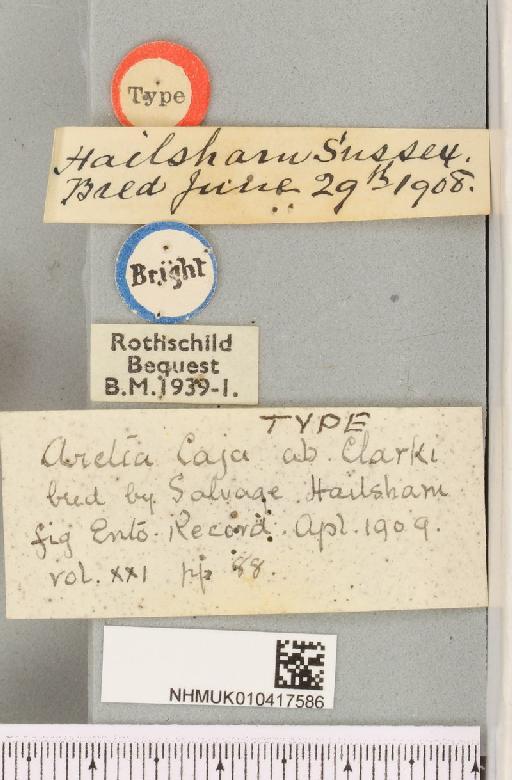 Type
Hailsham Sussex.
Bred June 29th 1908.
Bright
Rothschild
Bequest
B.M.1939-1.
TYPE
Arctia Caja ab. Clarki
bred by Salvage Hailsham
fig Ento. Record. Apl. 1909.
vol. XXI pp 88.
NHMUK010417586